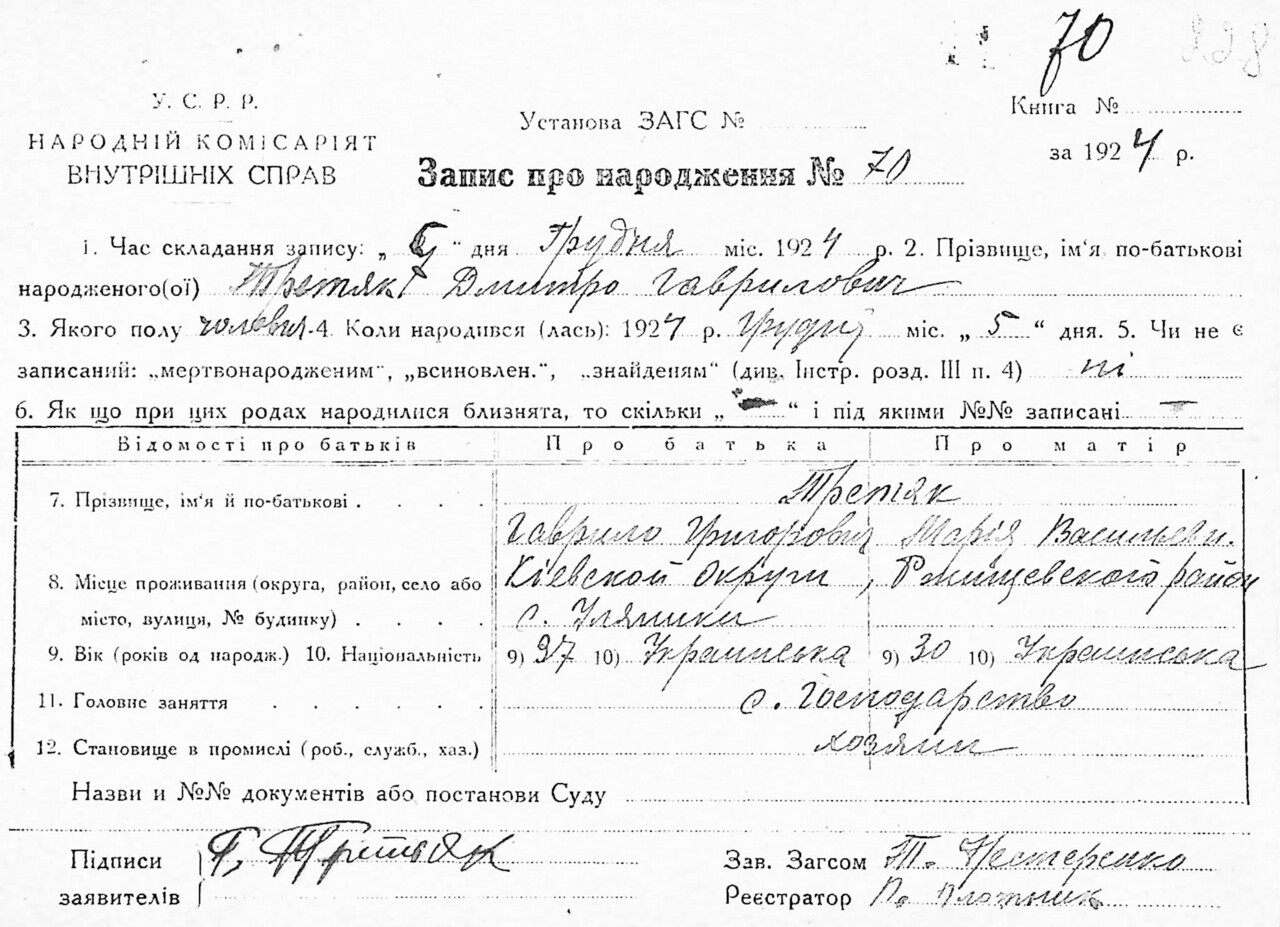 70 228
У. С. Р. Р.
НАРОДНІЙ КОМІСАРІЯТ
ВНУТРІШНІХ СПРАВ
Установа ЗАГС №
Книга №
за 1924 р.
Запис про народження № 70
1. Час складання запису: „ " дня Грудня міс. 1924 р. 2. Прізвище, ім'я по-батькові
народженого(ої) Третяк Дмитро Гаврилович
3. Якого полу чоловіч. 4. Коли народився (лась): 1924 р. Грудня міс. „ 5 " дня. 5. Чи не є
записаний: „мертвонародженим", „всиновлен.", „знайденям" (див. Інстр. розд. III п. 4) ні
6. Як що при цих родах народилися близнята, то скільки „ — " і під якими №№ записані —
Відомості про батьків Про батька Про матір
7. Прізвище, ім'я й по-батькові . . . . Третяк
Гаврило Григорович Марія Васильевн.
8. Місце проживання (округа, район, село або Кіевской Округи, Ржищевского район
місто, вулиця, № будинку) . . . . с. Уляники
9. Вік (років од народж.) 10. Національність 9) 37 10) Украинська 9) 30 10) Украинська
11. Головне заняття . . . . . . с. Господарство
12. Становище в промислі (роб., служб., хаз.) хозяин
Назви и №№ документів або постанови Суду
Підписи
заявителів
Г. Третьяк
Зав. Загсом Т. Нестеренко
Реєстратор П. Плотник